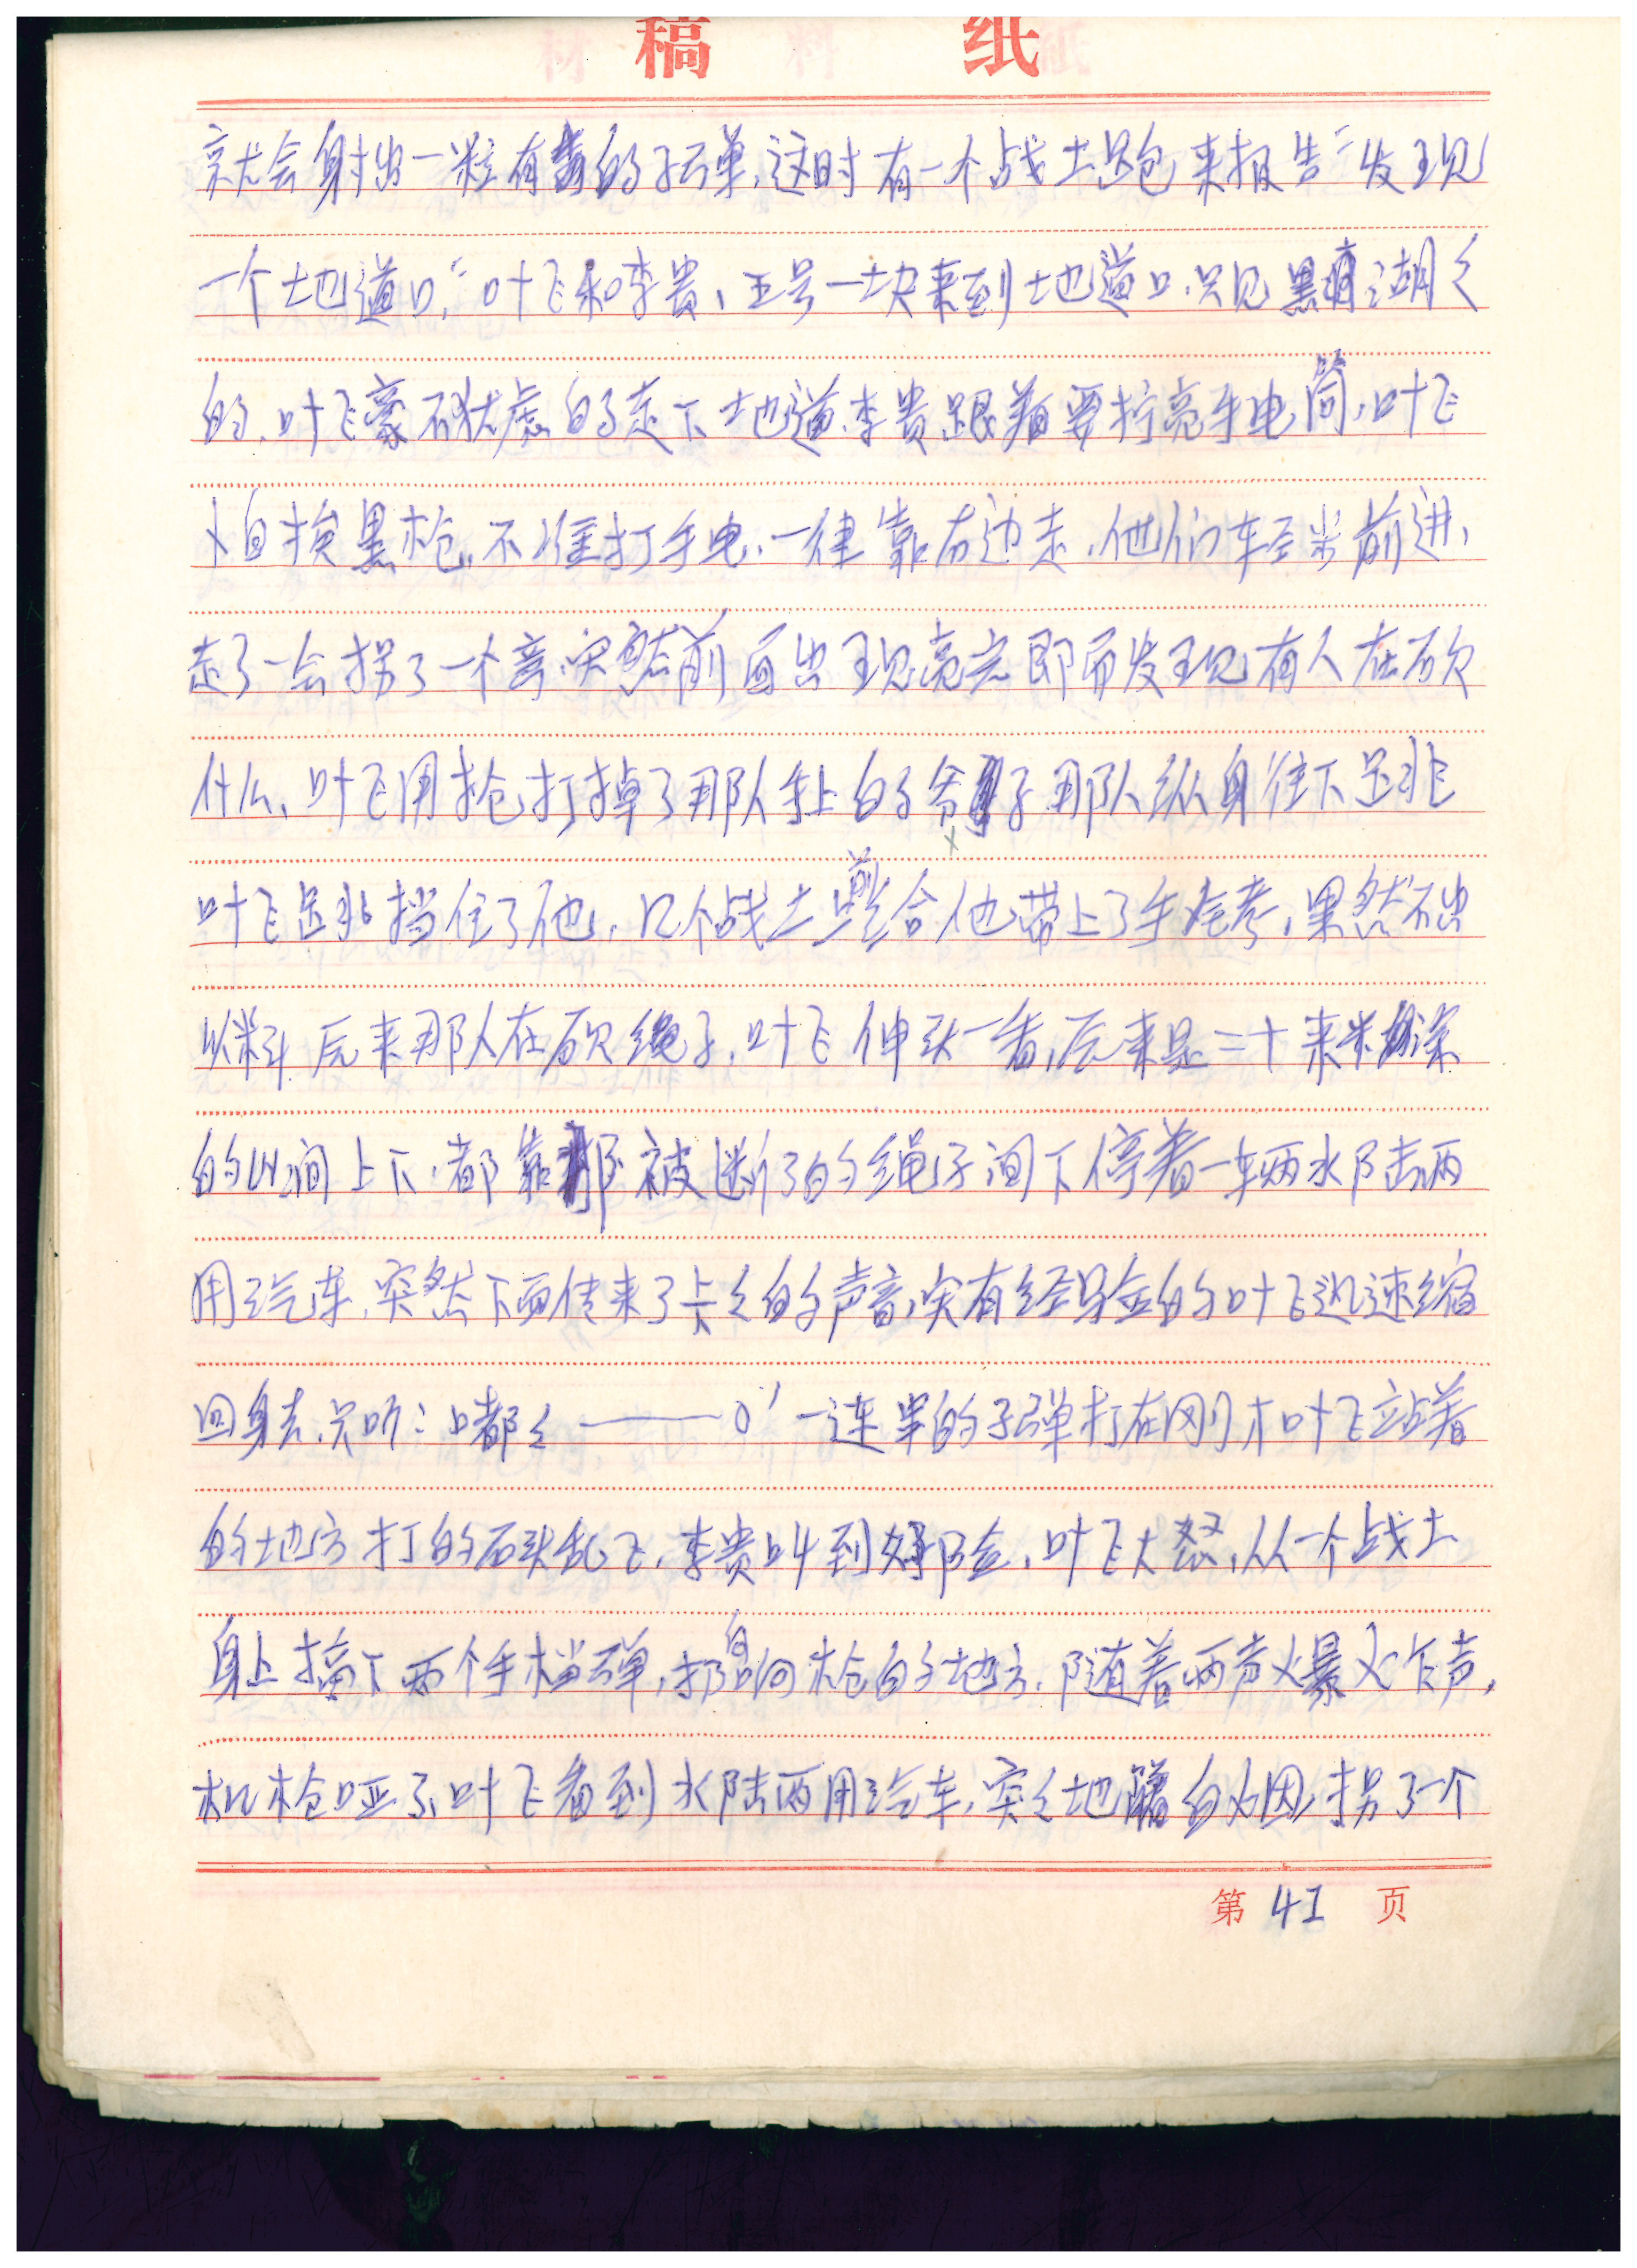 稿 纸
就会射出一粒有毒的子弹,这时有一个战士跑来报告“发现
一个地道口,”叶飞和李贵、五号一块来到地道口.只见黑湖々
的.叶飞豪不犹虑的走下地道.李贵跟着要拧亮手电筒,叶飞
挨黑枪,不准打手电,一律靠右边走,他们前进,
走了一会拐了一个弯.突然前面出现亮光即而发现有人在砍
什么,叶飞用枪打掉了那队手上的斧子那队纵身往下跳
叶飞跳挡住了他,几个战士给他带上了手铐,果然不出
料后来那队在砍绳子,叶飞伸头一看,后来是二十来米深
的山涧上下.都靠那被断了的绳子涧下停着一辆水陆两
用汽车.突然下面传来了卡々的声音,实有经验的叶飞迅速缩
回身去,只听:嘟々——一连串的子弹打在刚才叶飞站着
的地方打的石头乱飞,李贵叫到好险,叶飞大怒,从一个战士
身上摘下两个手榴弹,扔向枪的地方.随着两声爆炸声,
机枪哑了,叶飞看到水陆两用汽车,突々地拐了一个
第 41 页